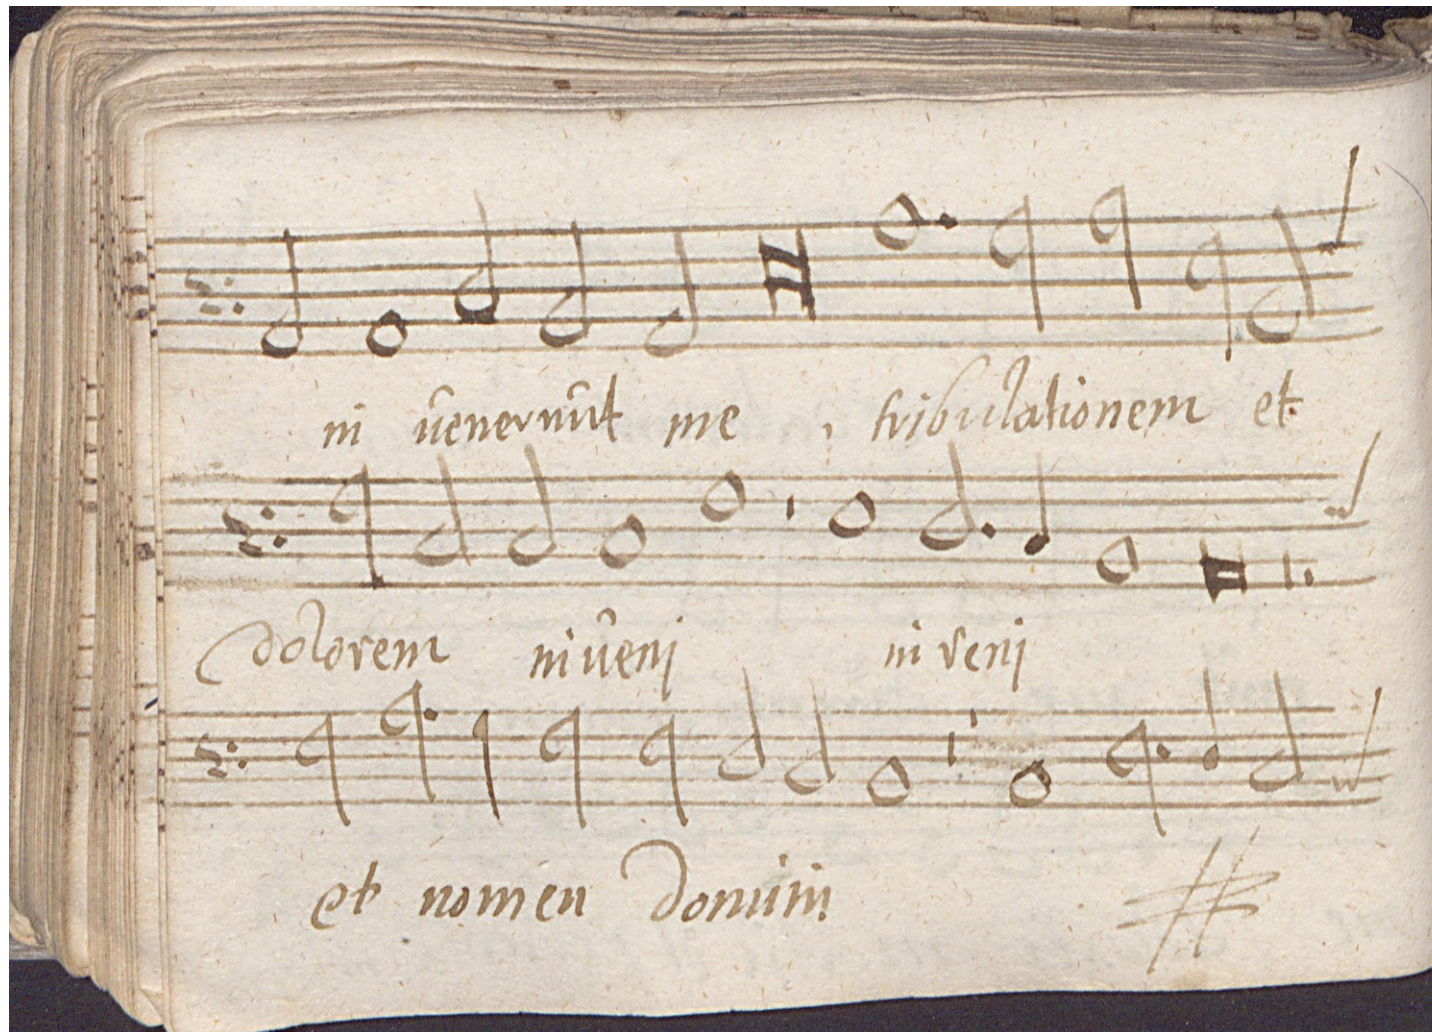 in venerũt me, tribulationem et
dolorem invẽni in veni
et nomen domini